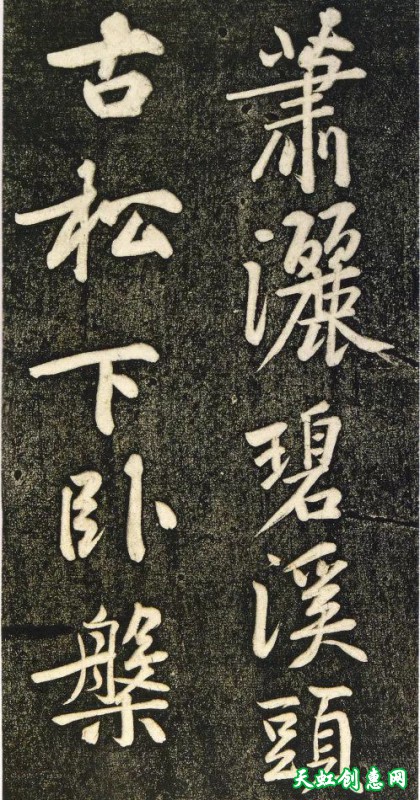 蕭灑碧溪頭
古松下卧槃
天虹创惠网